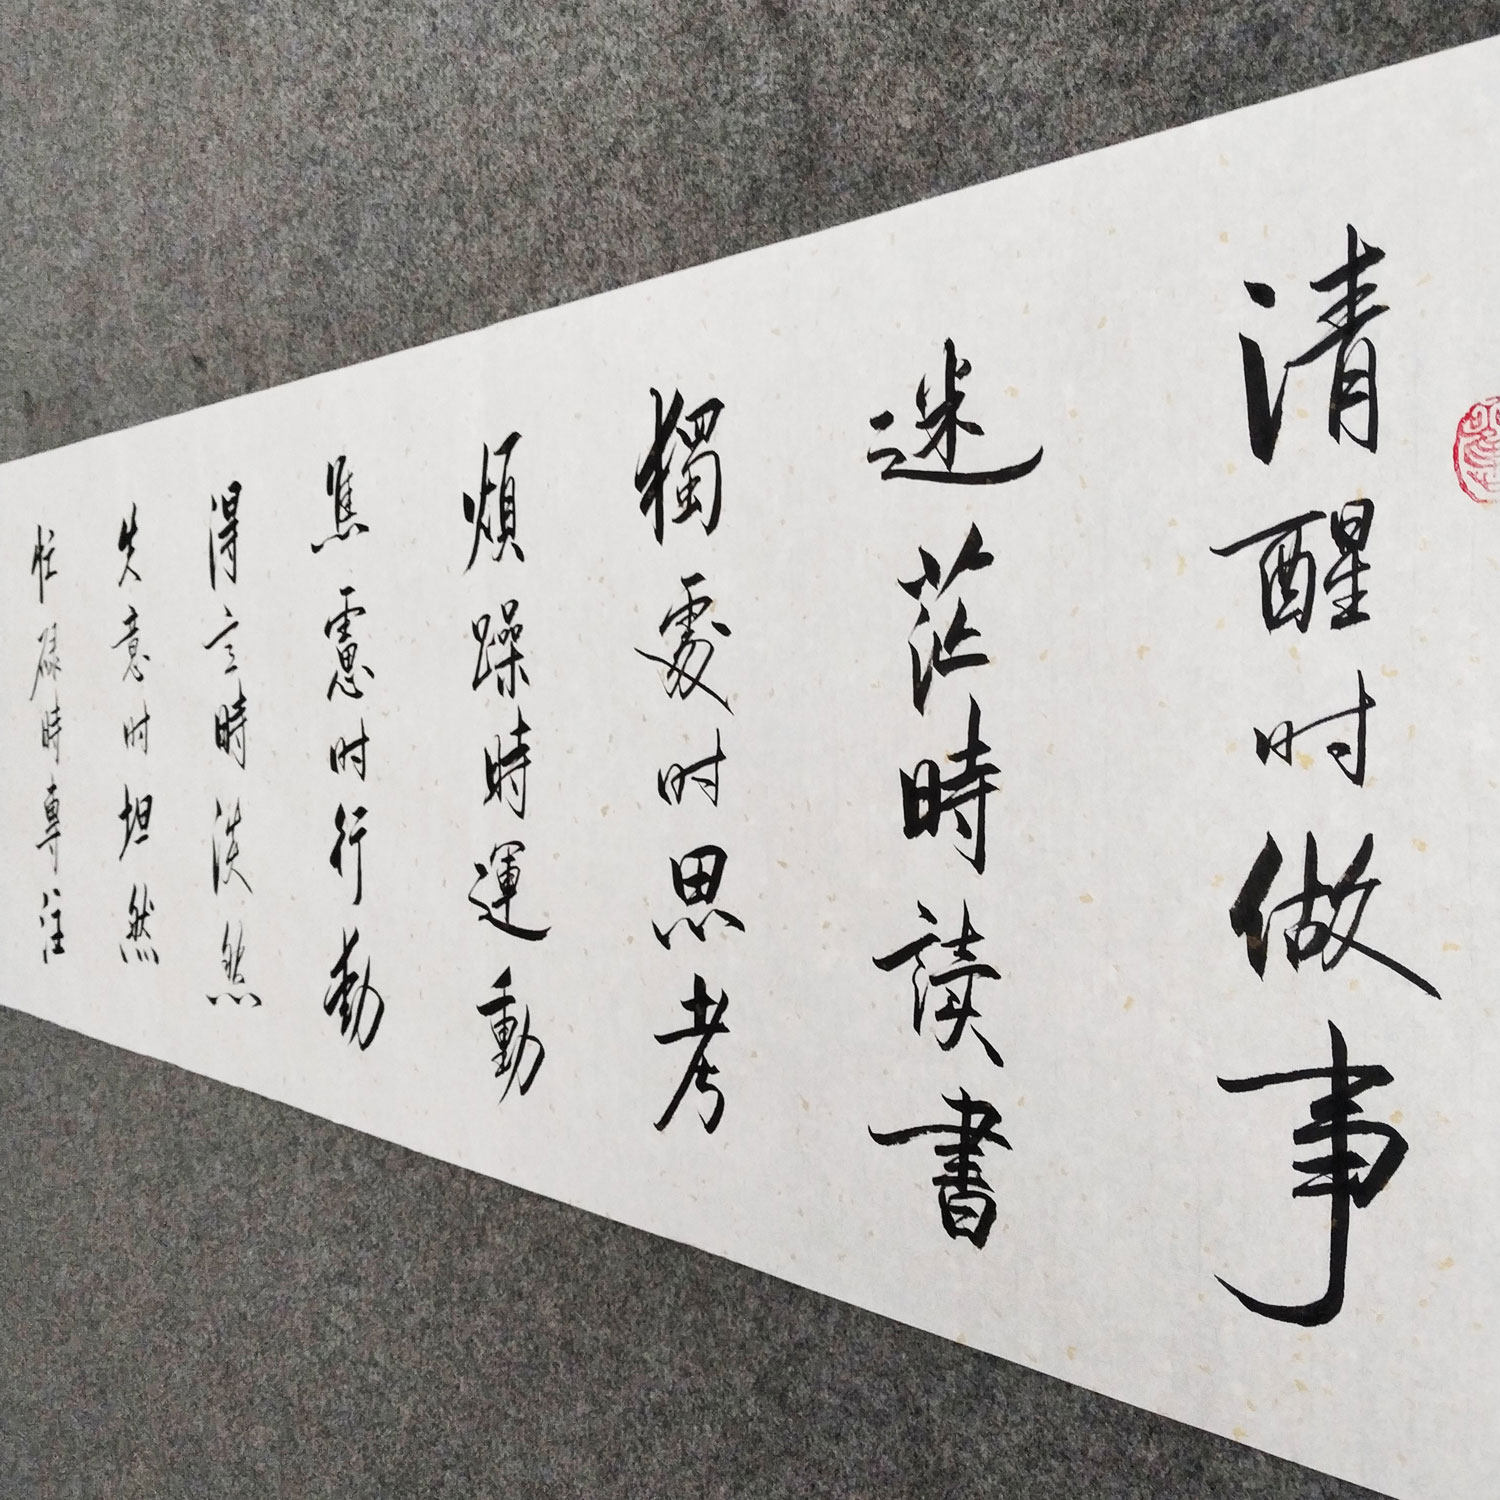 清醒时做事
迷茫時读書
獨處时思考
煩躁時運動
焦慮时行動
得意時淡然
失意时坦然
忙碌時專注